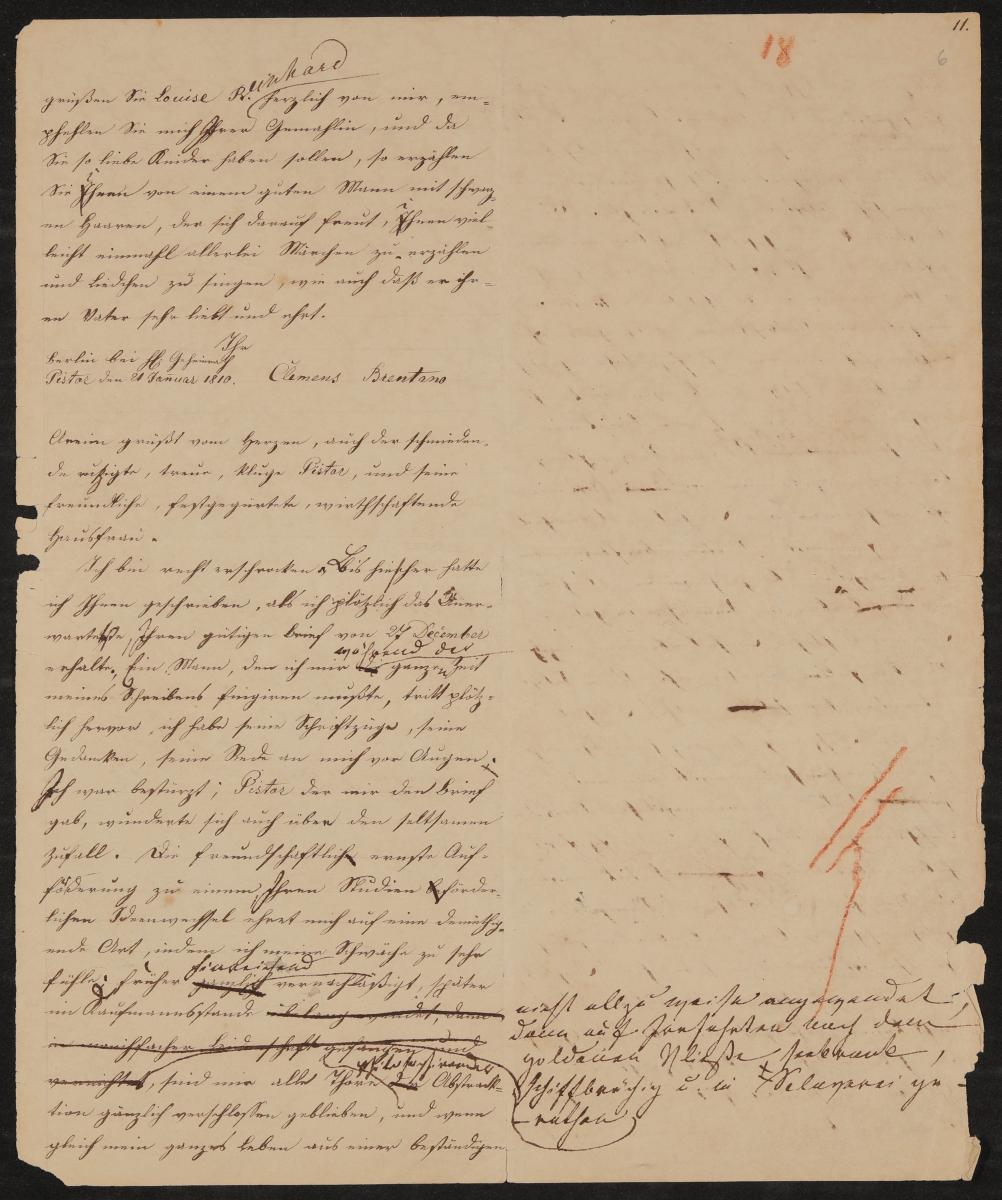 11.
18
6
grüßen Sie Louise Reinhard herzlich von mir, em-
pfehlen Sie mich Ihrer Gemahlin, und da
Sie so liebe Kinder haben sollen, so erzählen
Sie ihnen von einem guten Mann mit schwarz-
en Haaren, der sich darauf freut, ihnen viel-
leicht einmahl allerlei Märchen zu erzählen
und Liedchen zu singen, wie auch daß er ihr-
en Vater sehr liebt und ehrt.
Ihr
Berlin bei H. Geheimrath
Pistor den 21 Januar 1810. Clemens Brentano
Arnim grüßt vom Herzen, auch der schmieden-
de rußigte, treue, kluge Pistor, und seine
freundliche, festgegürtete, wirthschaftende
Hausfrau.
Ich bin recht erschrocken. Bis hieher hatte
ich Ihnen geschrieben, als ich plötzlich das Uner-
wartetste, Ihren gütigen Brief von 27 December
während der
erhalte. Ein Mann, den ich mir die ganzen Zeit
meines Schreibens fingiren mußte, tritt plötz-
lich hervor, ich habe seine Schriftzüge, seine
Gedanken, seine Rede an mich vor Augen.
Ich war bestürzt; Pistor der mir den Brief
gab, wunderte sich auch über den seltsamen
Zufall. Die freundschaftliche ernste Auf-
foderung zu einem, Ihren Studien beförder-
lichen Ideenwechsel ehret mich auf eine demüthig-
ende Art, indem ich meine Schwäche zu sehr
hinreichend
fühle; früher vernachläßigt, später
im Kaufmannsstande
philosophirender
und
vernichtet, sind mir alle Thore der Abstrack-
tion gänzlich verschlossen geblieben, und wenn
gleich mein ganzes Leben aus einer beständigen
nicht allzu weise angewendet,
dann auf Irrfahrten nach dem
goldenen Vließe seekrank,
schiffbrüchig u. in Sclaverei ge-
rathen